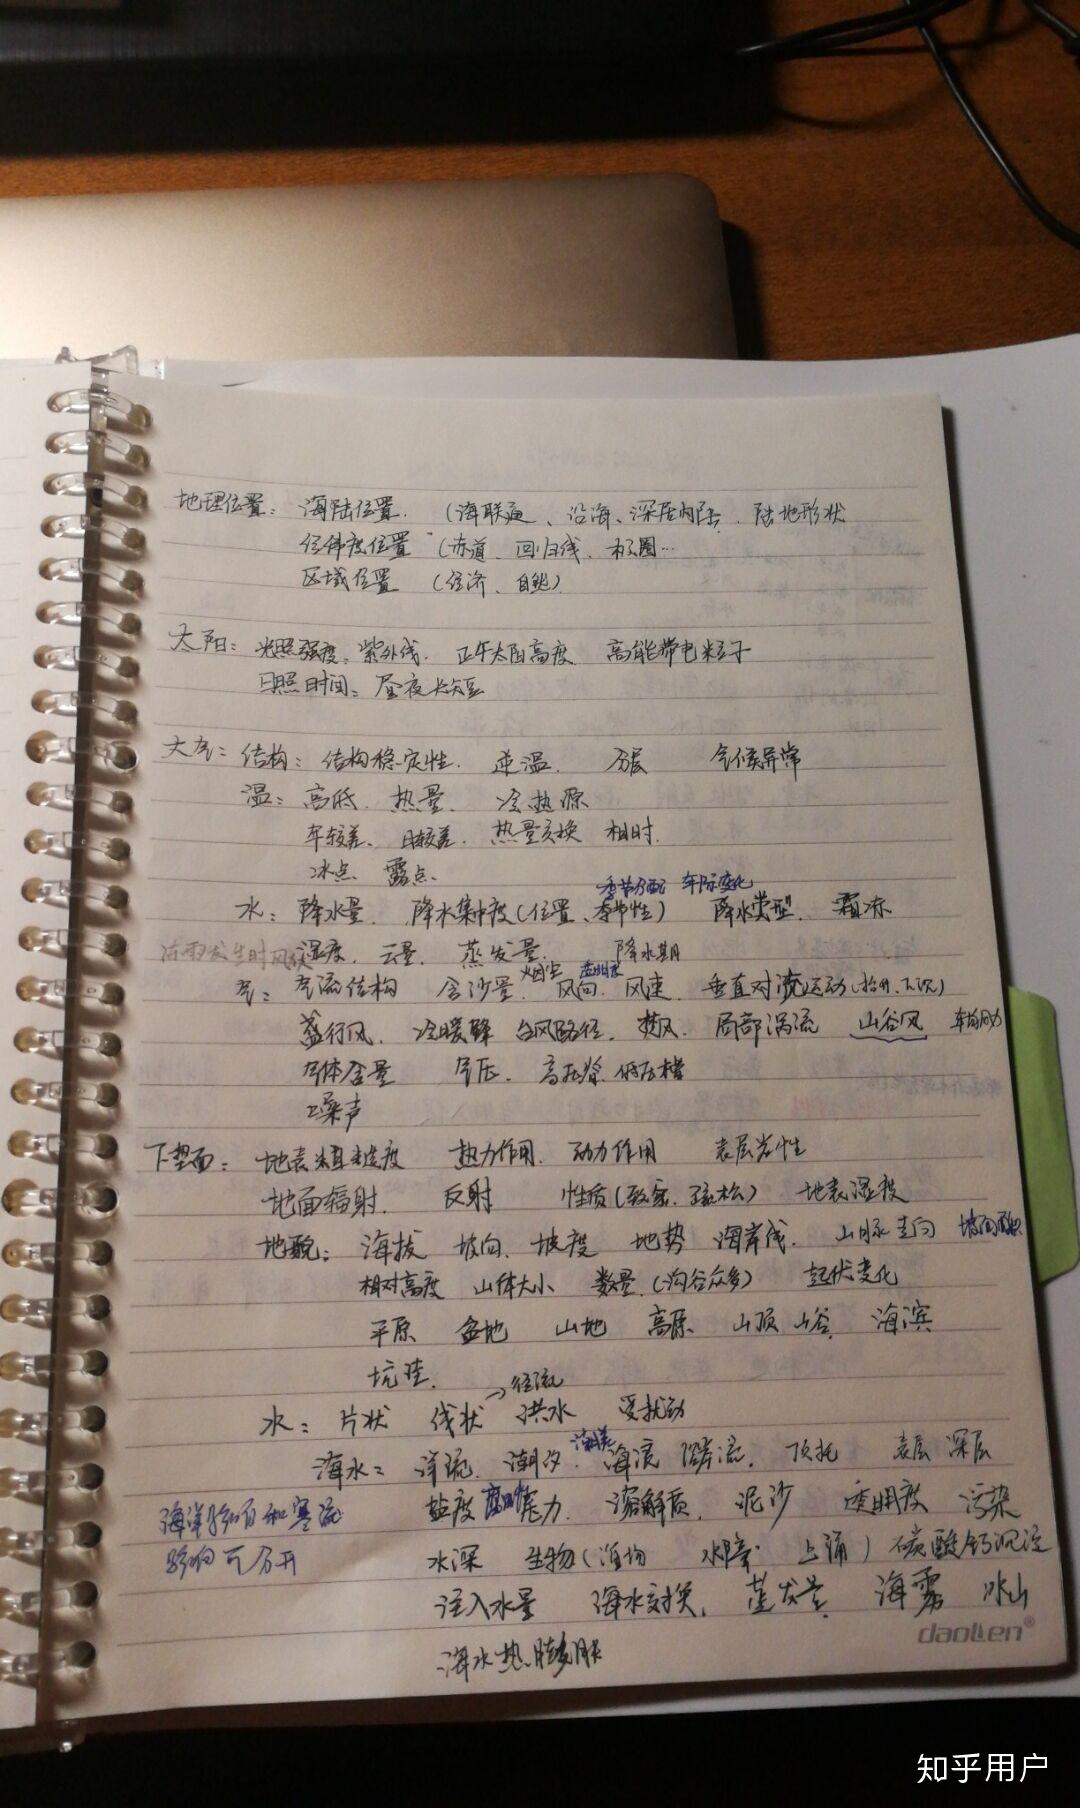 地理位置：海陆位置．（海联通、沿海、深居内陆．陆地形状
经纬度位置（赤道、回归线、极圈…
区域位置（经济、自然）
太阳：光照强度：紫外线．正午太阳高度 高能带电粒子
日照时间：昼夜长短
大气：结构：结构稳定性．逆温． 分层 气候异常
温：高低．热量． 冷热源
年较差、日较差．热量交换 相时．
冰点 露点、
季节分配 年际变化
水：降水量． 降水集中度（位置、季节性） 降水类型．霜冻
冻雨发生时风
湿度、云量． 蒸发量． 降水期
烟尘 透明度
气：气流结构 含沙量．风向．风速．垂直对流运动（抬升、下沉）
盛行风．冷暖锋 台风路径．焚风．局部涡流 山谷风
气体含量 气压．高压脊．低压槽
噪声
下垫面：地表粗糙度 热力作用．动力作用 表层岩性
地面辐射． 反射 性质（致密．疏松） 地表湿度
地貌：海拔 坡向．坡度 地势 海岸线．山脉走向
相对高度 山体大小 数量．（沟谷众多） 起伏变化
平原 盆地 山地 高原 山顶 山谷．海滨
坑洼．
→径流
水：片状 线状 洪水 受扰动
潮差
海水：洋流．潮汐．海流 沿岸流．顶托 表层 深层
盐度 腐蚀性 压力 溶解质．泥沙 透明度 污染
海洋影响和寒流
影响可分开
水深 生物（渔场 水障 上涌）碳酸钙沉淀
注入水量 海水交换．蒸发量．海雾 冰山
海水热膨胀
daoLen®
知乎用户